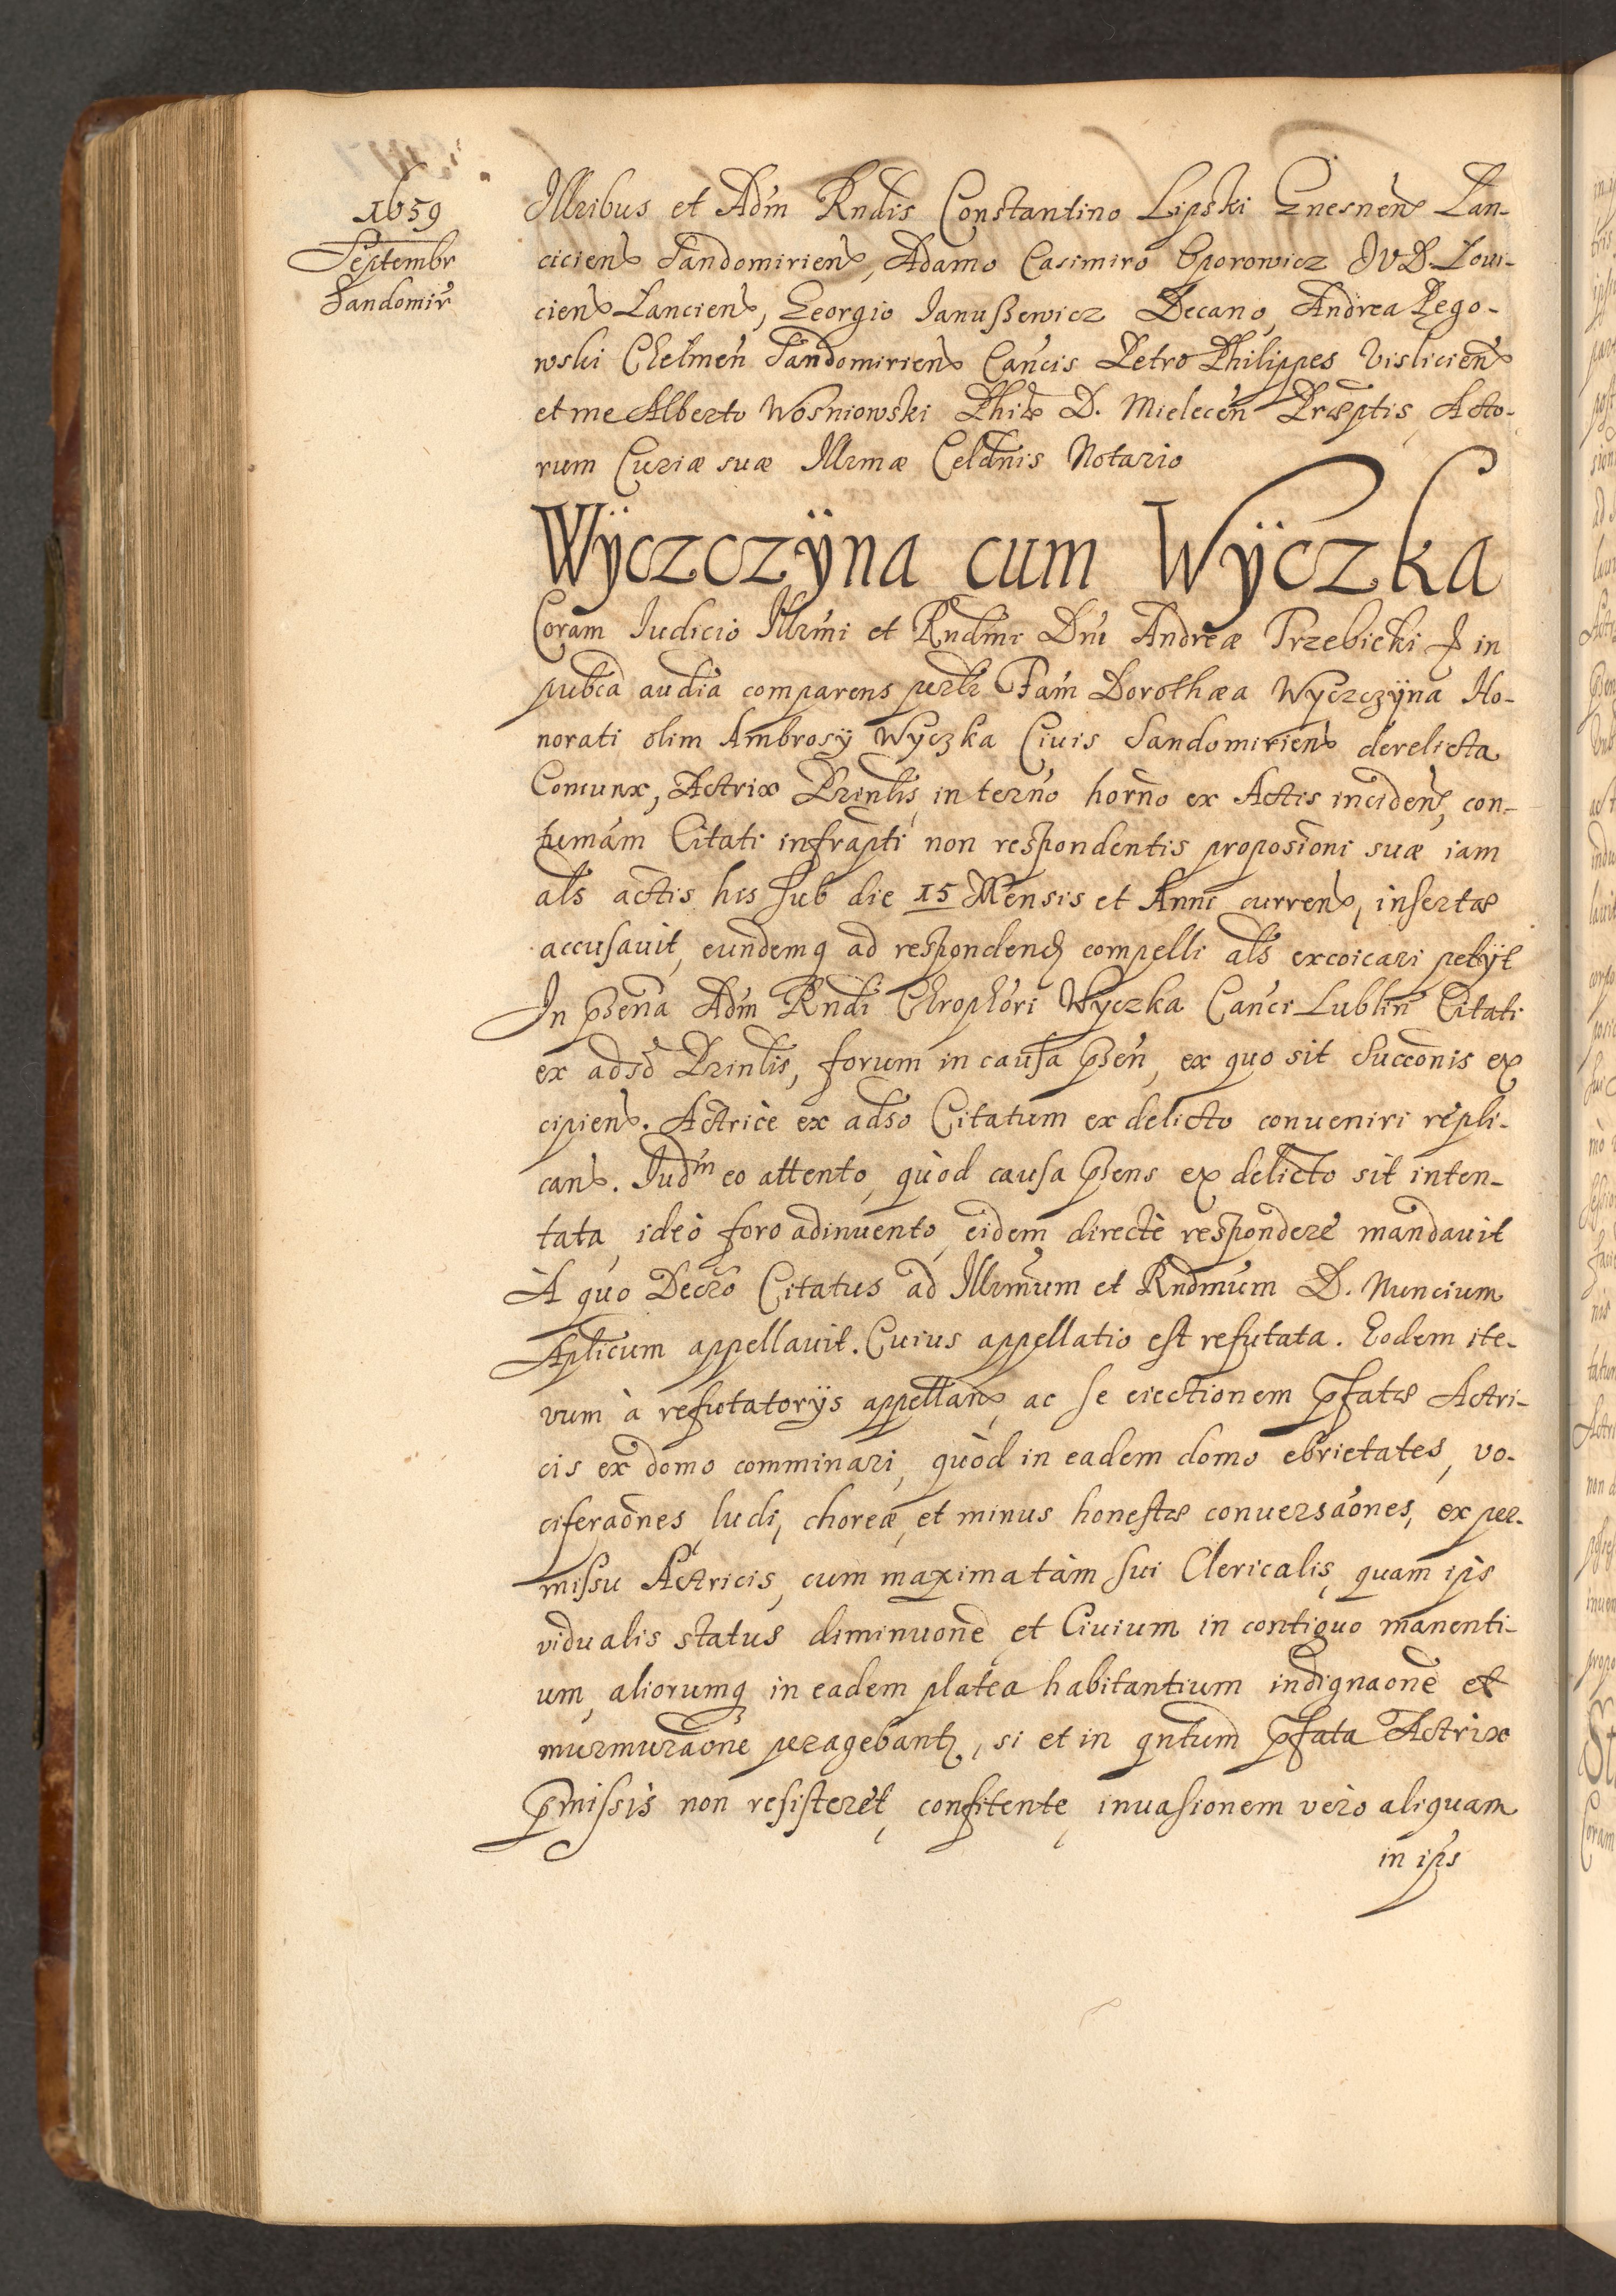 1659
Septembr
Sandomir̃
Illribus et Adm̃ Rndis Constantino Lipski Gnesnen̄ Lan-
cicien̄ Sandomirien̄, Adamo Casimiro Oporowicz JVD. Loui-
cien̄ Lancien̄, Georgio Ianuſsewicz Decano, Andrea Rego-
wski Chelmen̄ Sandomirien̄ Can̄cis Petro Philippes Vislicien̄
et me Alberto Wosniowski Phiæ D. Mielecen̄ Præptis, Acto-
rum Curiæ suæ Illrmæ Celdnis Notario
Wÿczczÿna cum Wÿczka
Coram Iudicio Illrmi et Rndmi Dni Andreæ Trzebicki in
pubca audia comparens perlr Fam̃ Dorothæa Wyczczÿna Ho-
norati olim Ambrosÿ Wyczka Ciuis Sandomirien̄ derelicta
Coniunx, Actrix Prinlis, in terno horno ex Actis inciden̄, con-
tumam̃ Citati infrapti non respondentis proposioni suæ iam
als actis his sub die 15 Mensis et Anni curren̄, inſertæ
accuſauit, eundemq ad respondendȝ compelli als excoicari petÿt
In p̄sena Adm̃ Rndi Chrophori Wyczka Can̄ci Lublin̄ Citati
ex adso Prinlis, forum in cauſa p̄sen̄, ex quo sit Succonis ex
cipien̄. Actrice ex adso Citatum ex delicto conueniri repli-
can̄. Iudm eo attento, quòd cauſa p̄sens ex delicto sit inten-
tata, ideò foro adinuento, eidem directè respondere mandauit
À quo Decro Citatus ad Illrmum et Rndmum D. Nuncium
Aplicum appellauit. Cuius appellatio eſt refutata. Eodem ite-
rum à refutatorÿs appellan̄, ac ſe eiectionem p̄fatæ Actri-
cis ex domo comminari, quòd in eadem domo ebrietates, vo-
ciferaones, ludi, choreæ, et minus honeſtæ conuersaones, ex per-
miſsu Actricis, cum maxima tàm ſui Clericalis, quam ips
vidualis status diminuone et Ciuium in contiguo manenti-
um, aliorumq in eadem platea habitantium indignaone et
murmuraone peragebantȝ, si et in qntum p̄fata Actrix
p̄miſsis non reſisteret, confitente, inuaſionem verò aliquam
in ips